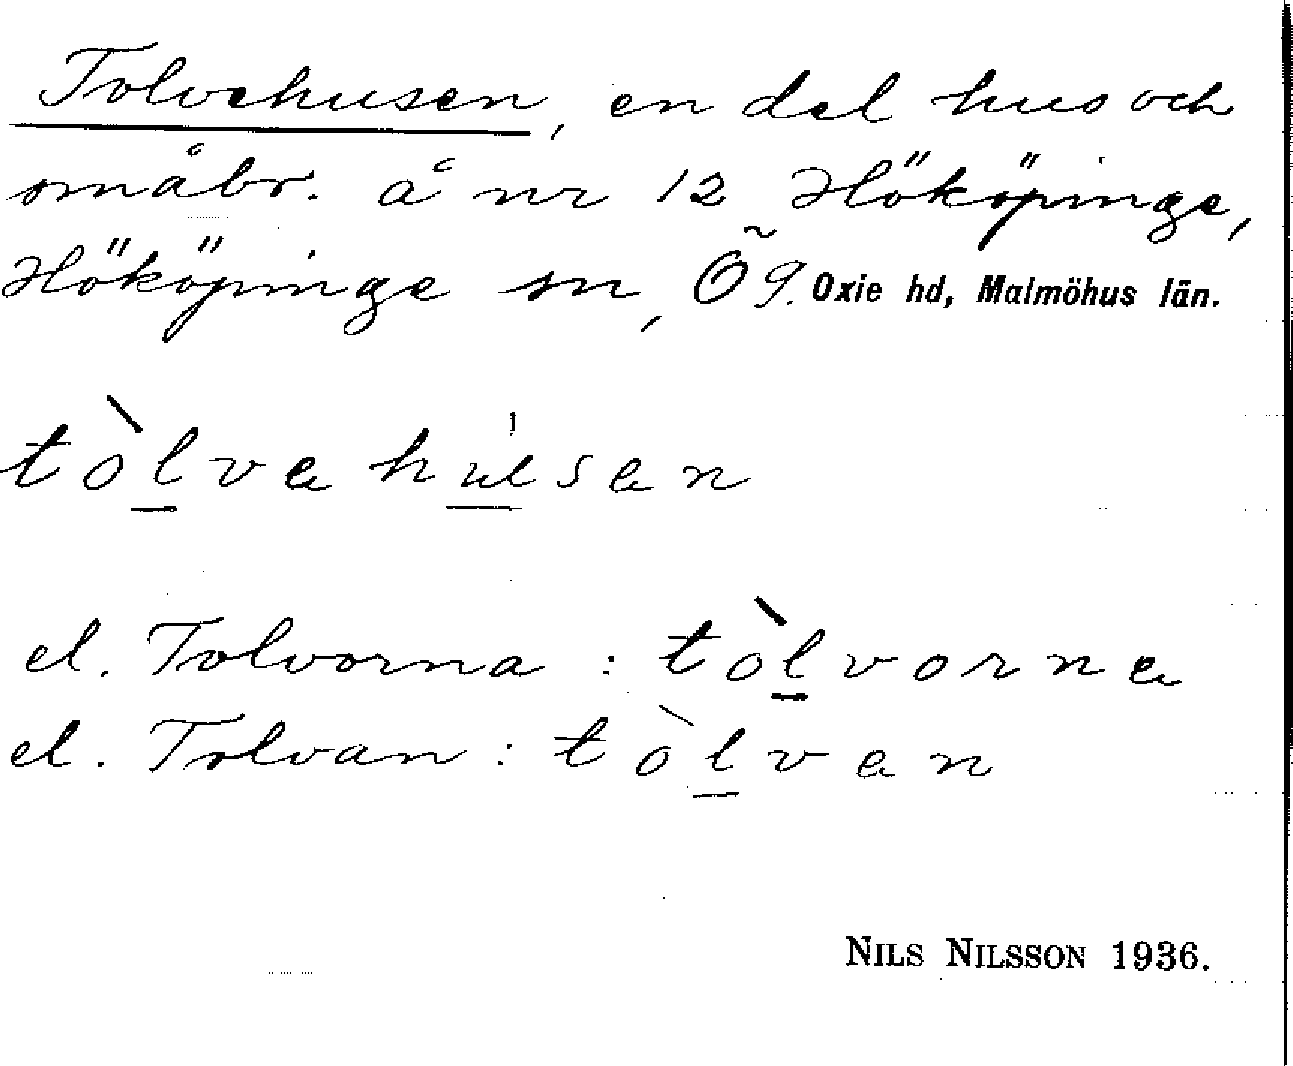 Tolvehusen, en del hus och
småbr. å nr 12 Hököpinge,
Hököpinge sn, Õ 9. Oxie hd, Malmöhus län.
tòlvehu̍sen
el. Tolvorna : tòlvorna
el. Tolvan : tòlvan
NILS NILSSON 1936.